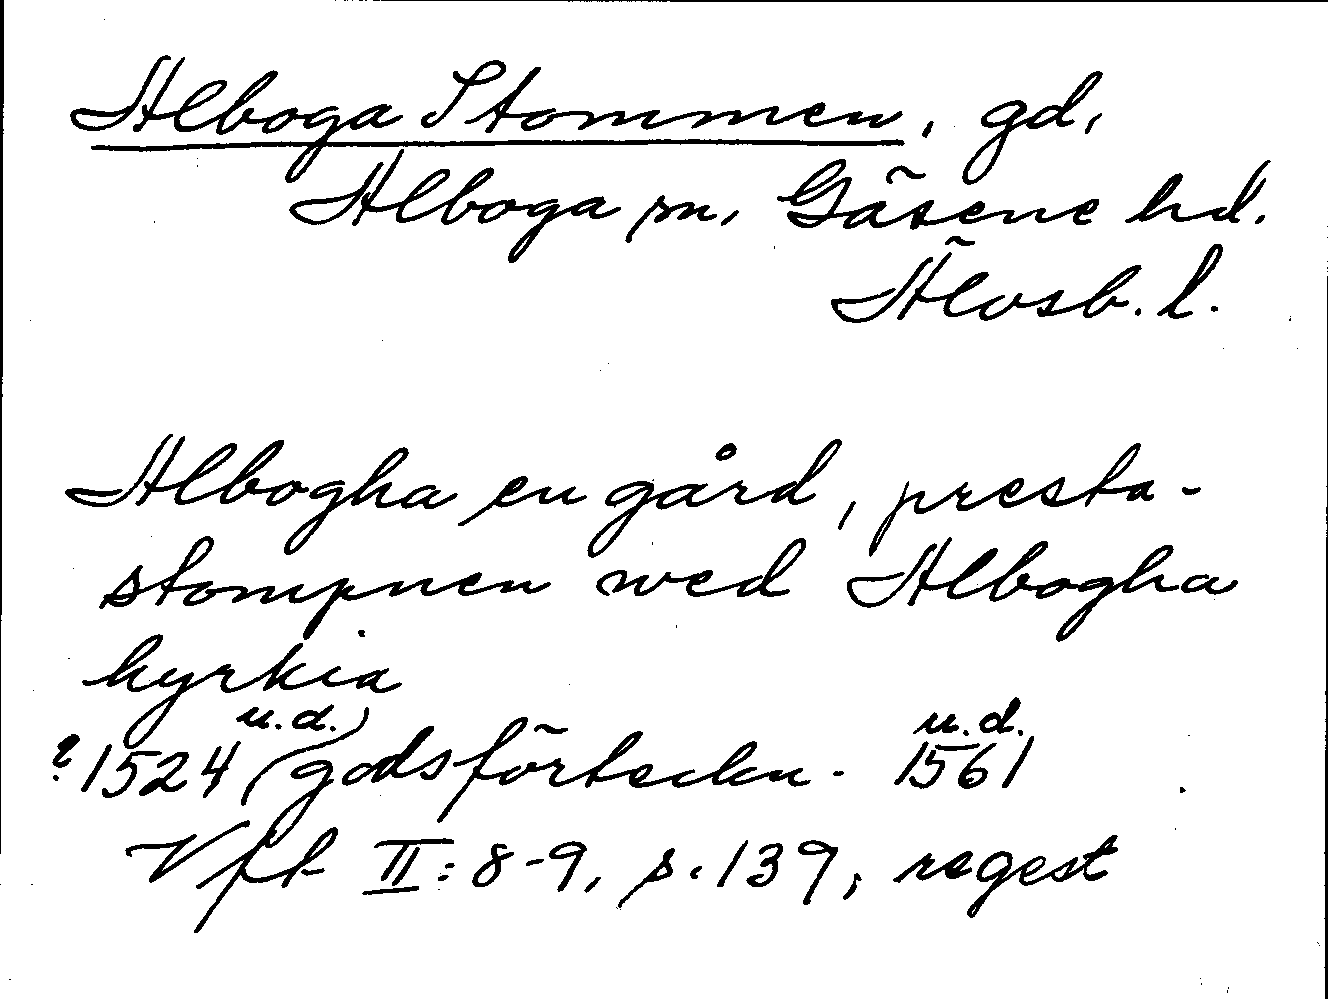 Alboga Stommen, gd,
Alboga sn, Gäsene hd.
Älvsb. l.
Albogha en gård, presta-
stompnen wed Albogha
kyrkia
u.d. u.d.
? 1524 (godsförteckn. 1561
Vft II: 8-9, s. 139, regest